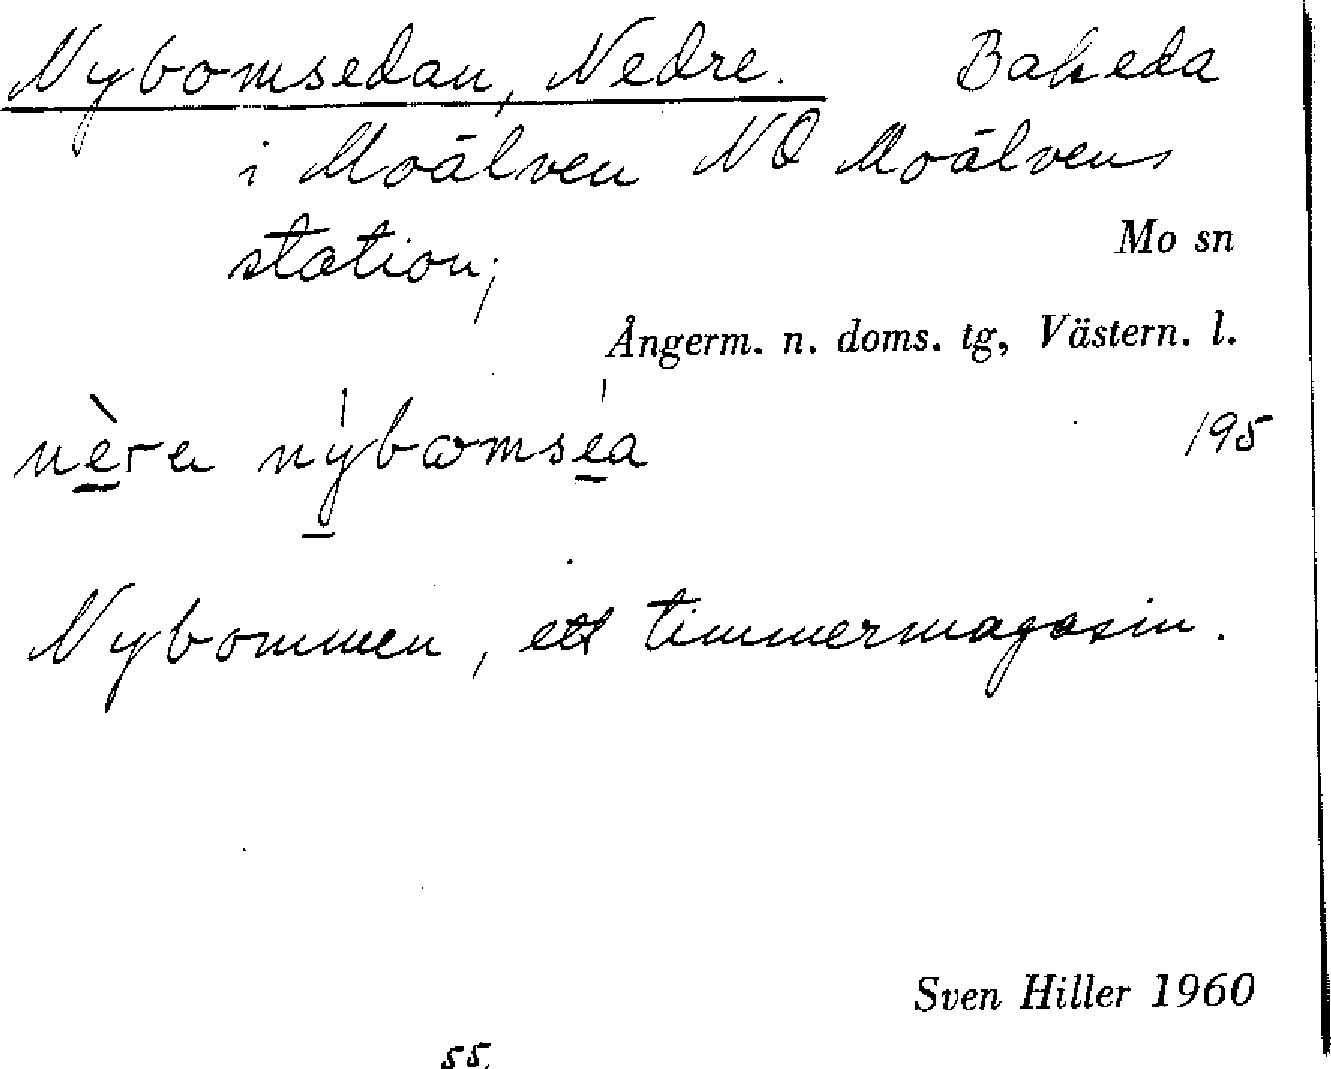 Nybomsedan, Nedre. Bakeda
i Moälven NO Moälvens
station;
Mo sn
Ångerm. n. doms. tg, Västern. l.
195
Nybommen, ett timmermagasin.
Sven Hiller 1960
55.